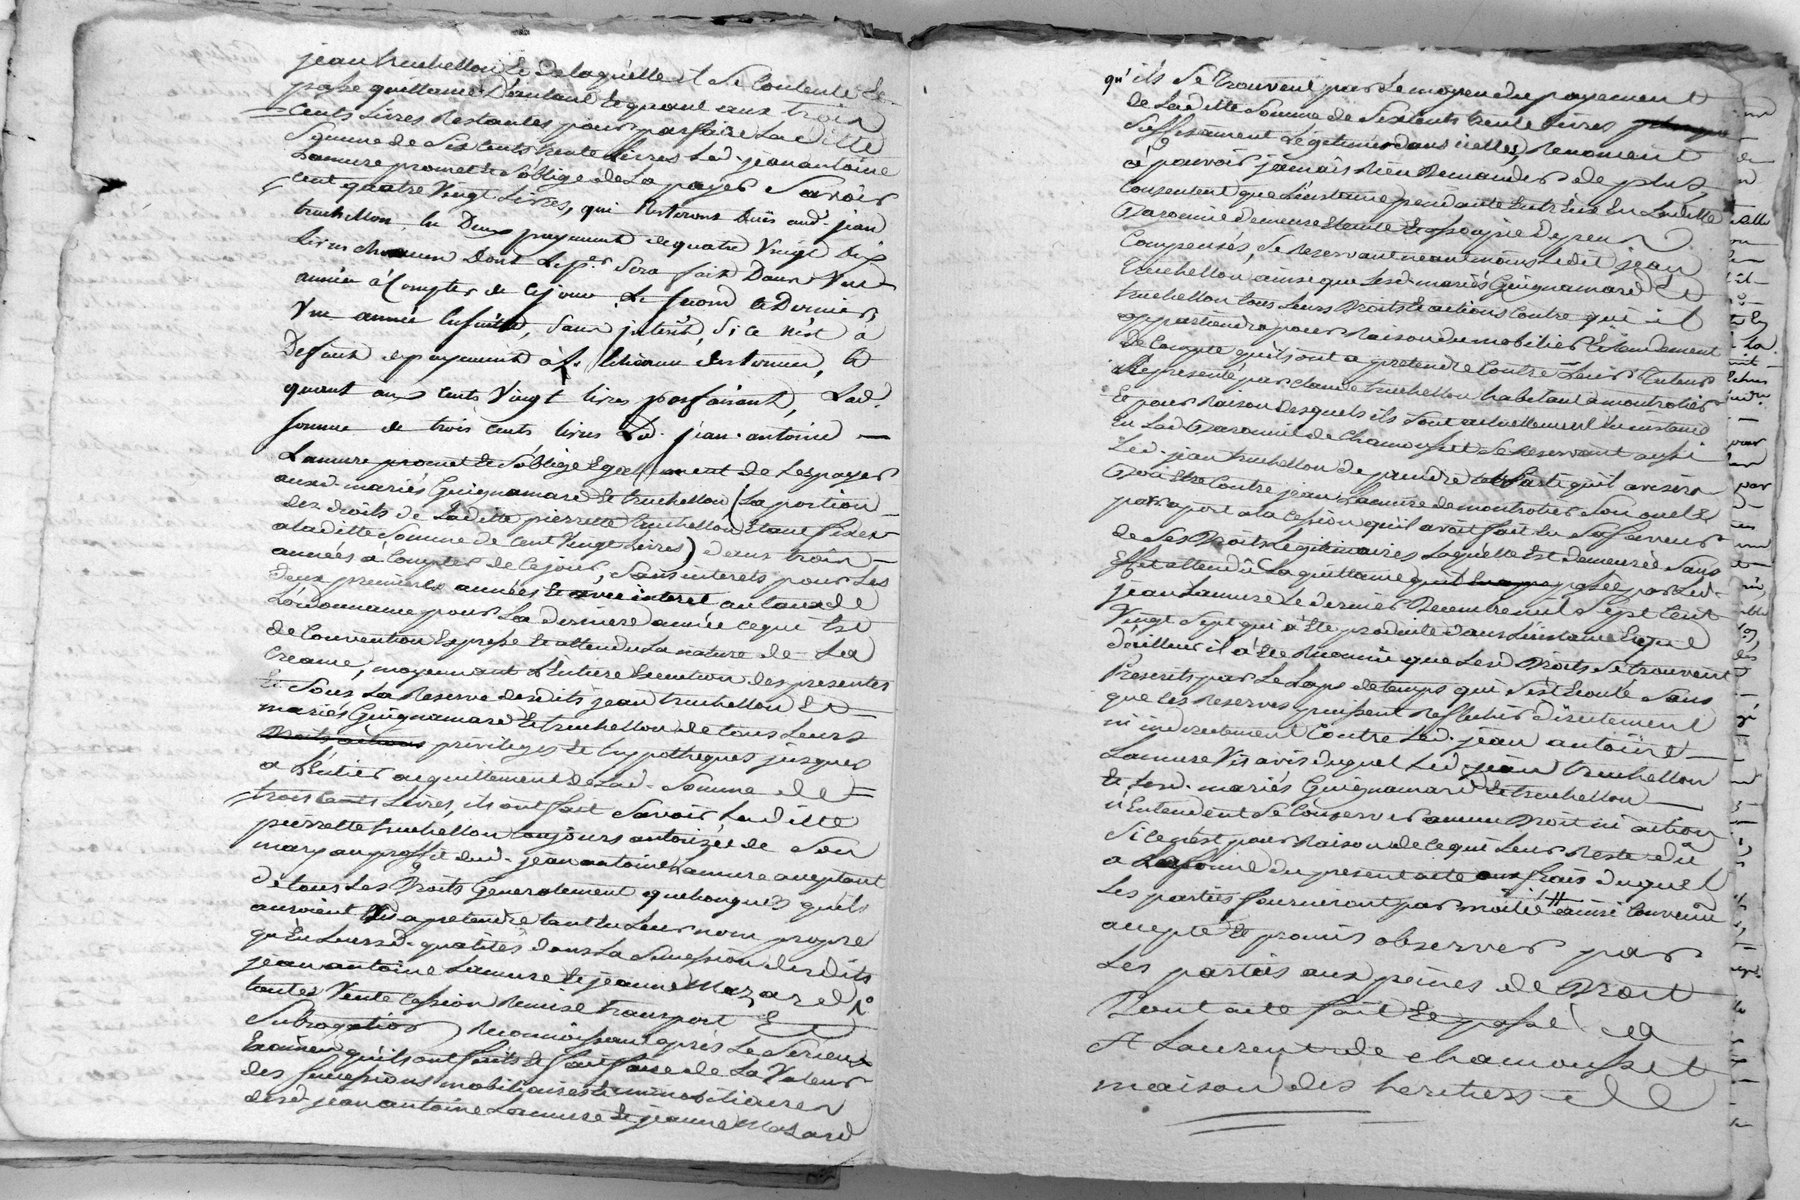 jean truchellon et de laquelle il se contente et
passe quittance d'autant et quant aux trois
cents livres restantes pour parfaire la ditte
somme de six cents trente livres led. jean antoine
Lamure promet et s'oblige de la payer savoir
cent quatre vingt livres, qui resteront dues aud. jean
truchellon, en deux payements de quatre vingt dix
livres chacun dont le per. sera fait dans une
année à compter de ce jour, le second et dernier
une année ensuitte, sans interêt, si ce n'est à
defaut de payement à l'échéance des termes, et
quant aux cents vingt livres parfaisant, lad.
somme de trois cents livres led. jean-antoine
Lamure promet et s'oblige egallement de les payer
auxd. mariés Guignamard et truchellon (la portion
des droits de ladite pierrette truchellon étant fixée
a la ditte somme de cent vingt livres) dans trois
années à compter de ce jour, sans interets pour les
deux premieres années et avec interet au taux de
l'ordonnance pour la derniere année ce qui est
de convention expresse et attendu la nature de la
creance, moyennant l'entiere execution des presentes
et sous la reserve desdits jean truchellon et
mariés Guignamard et truchellon de tous leurs
privileges et hypotheques jusques
a l'entier acquittement de lad. somme de
trois cents livres, ils ont fait savoir ladite
pierrette truchellon toujours autorizée de son
mary au proffit dud. jean antoine Lamure acceptant
de tous les droits generalement quelconques qu'ils
auroient a pretendre tant en leur nom propre
qu'en leursd. qualités dans la succession desdits
jean antoine Lamure et jeanne Mazard
toutes vente cession remise transport et
subrogation, reconnoissant après le serieux
examen qu'ils ont faits et fait faire de la valeur
des successions mobiliaires et immobiliaires
desd. jean antoine Lamure et jeanne Mazard
qu'ils se trouvent par le moyen du payement
de laditte somme de six cents trente livres
suffisament legitimés dans icelles, renoncent
à pouvoir jamais rien demander de plus
consentent que l'instance pendante entr'eux en laditte
Baronnie demeure eteinte et assoupie depens
compensés, se reservant neantmoins ledit jean
truchellon ainsi que lesd. mariés Guignamard et
truchellon tous leurs droits et actions contre qui il
appartiendra pour raison du mobilier et rendement
de compte qu'ils ont a pretendre contre leur tuteur
representé par claude truchellon habitant a montrotier
et pour raison desquels ils sont actuellement en instance
en lad. Baronnie de chamousset se reservant aussi
led. jean truchellon de prendre tel parti qu'il avisera
contre jean Lamure de montrotier son oncle
par raport a la cession qu'il avoit fait en sa faveur
de ses droits legitimaires laquelle est demeurée sans
effet attendu la quittance passée par led.
jean Lamure le dernier decembre mil sept cent
vingt sept qui a été produite dans l'instance et que
d'ailleurs il a été reconnu que lesd. droits se trouvent
prescrits par le laps de temps qui s'est écoulé sans
que les reserves puissent reflechir directement
ni indirectement contre led. jean antoine
Lamure vis avis duquel led. jean truchellon
et lesd. mariés Guignamard et truchellon
n'entendent se conserver aucun droit ni action
si ce n'est pour raison de ce qui leur reste dû
a la forme du present acte aux frais duquel
les parties fourniront par moitié # ainsi convenu
accepté et promis observer par
les parties aux peines de droit
Dont acte fait et passé a
St Laurent de chamousset
maison des heritiers de